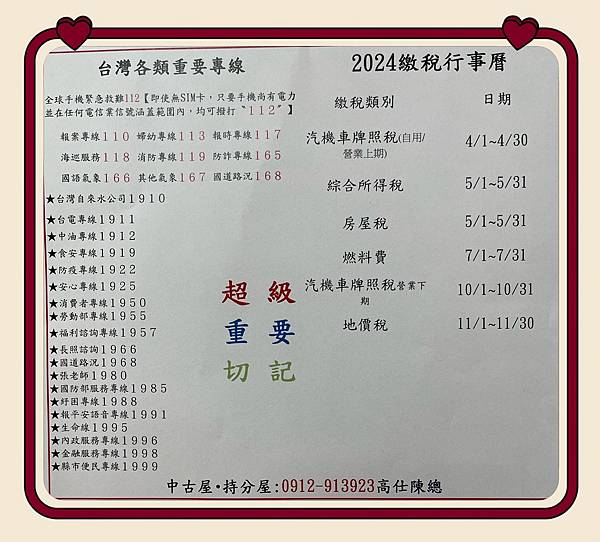 台灣各類重要專線
全球手機緊急救難112【即使無SIM卡，只要手機尚有電力
並在任何電信業信號涵蓋範圍內，均可撥打〝112〞】
報案專線110 婦幼專線113 報時專線117
海巡服務118 消防專線119 防詐專線165
國語氣象166 其他氣象167 國道路況168
★台灣自來水公司1910
★台電專線1911
★中油專線1912
★食安專線1919
★防疫專線1922
★安心專線1925
★消費者專線1950
★勞動部專線1955
★福利諮詢專線1957
★長照諮詢1966
★國道路況1968
★張老師1980
★國防部服務專線1985
★紓困專線1988
★報平安語音專線1991
★生命線1995
★內政服務專線1996
★金融服務專線1998
★縣市便民專線1999
超級
重要
切記
2024繳稅行事曆
繳稅類別 日期
汽機車牌照稅(自用/
營業上期) 4/1~4/30
綜合所得稅 5/1~5/31
房屋稅 5/1~5/31
燃料費 7/1~7/31
汽機車牌照稅營業下
期 10/1~10/31
地價稅 11/1~11/30
中古屋•持分屋:0912-913923高仕陳總